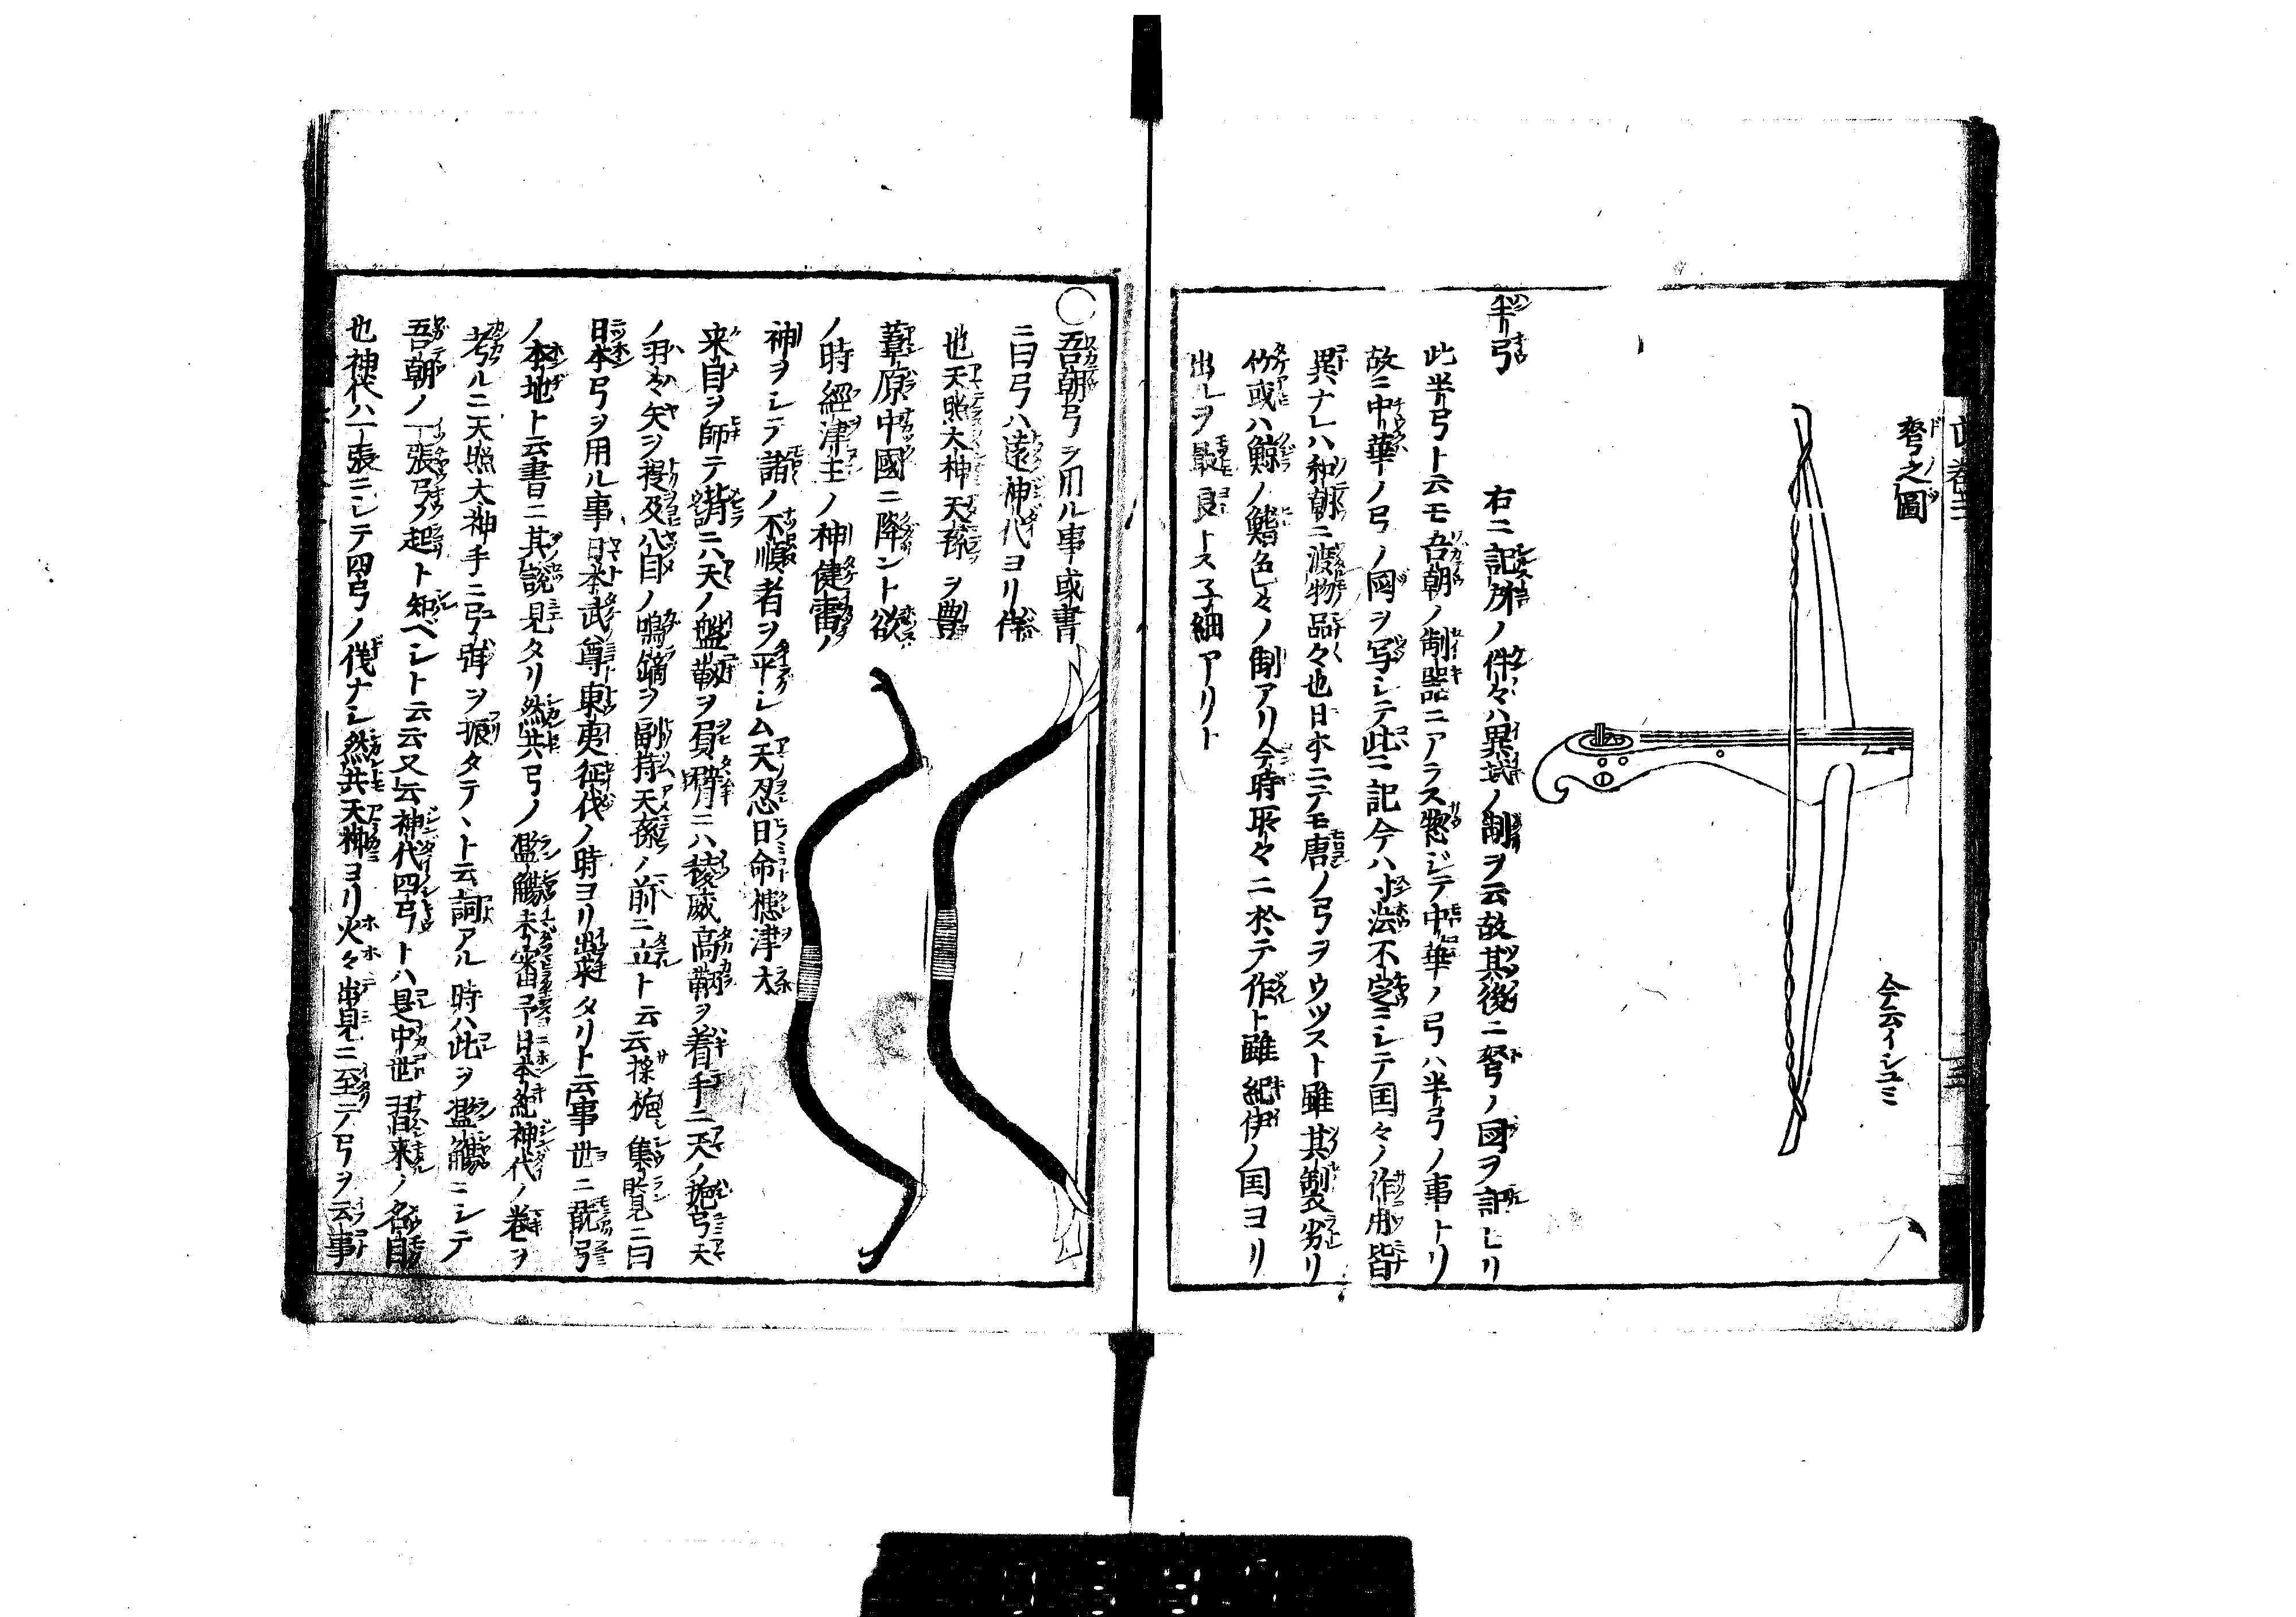 弩之圖
今云イシユミ
右ニ記所ノ件々ハ異域ノ制ヲ云故其後ニ弩ノ図ヲ記セリ
半弓
此半弓ト云モ吾朝ノ制器ニアラス惣ジテ中華ノ弓ハ半弓ノ事トリ
故ニ中華ノ弓ノ図ヲ写シテ此ニ記今ハ寸法不定ニシテ国々ノ作用皆
異ナレハ和朝ニ渡物品々也日本ニテモ唐ノ弓ヲウツスト雖其製劣リ
竹或ハ鯨ノ鰭色々ノ制アリ今時所々ニ於テ作ト雖紀伊ノ国ヨリ
出ルヲ最良トス子細アリト
○吾朝弓ヲ用ル事或書
ニ曰弓ハ遠神代ヨリ傳
也天照大神天孫ヲ豊
葦原中國ニ降ント欲
ノ時經津主ノ神健雷ノ
神ヲシテ諸ノ不順者ヲ平シム天忍日命槵津大
来目ヲ師テ背ニハ天ノ盤靫ヲ負臂ニハ稜威高鞆ヲ着手ニ天ノ梔弓天
ノ羽々矢ヲ提及八目ノ鳴鏑ヲ副持天孫ノ前ニ立ト云云集覧ニ曰
日本弓ヲ用ル事日本武ノ尊東夷征伐ノ時ヨリ出来タリト云事世ニ
ノ本地ト云書ニ其説見タリ然共弓ノ濫觴未審予日本紀神代ノ巻ヲ
考ルニ天照大神手ニ弓弭ヲ振タテヽト云詞アル時ハ此ヲ濫觴ニシテ
吾朝ノ一張弓ノ起ト知ベシト云云又云神代四弓トハ是中世習来ノ名目
也神代ハ一張ニシテ四弓ノ儀ナシ然共天神ヨリ火々出見ニ至テノ弓ヲ云事